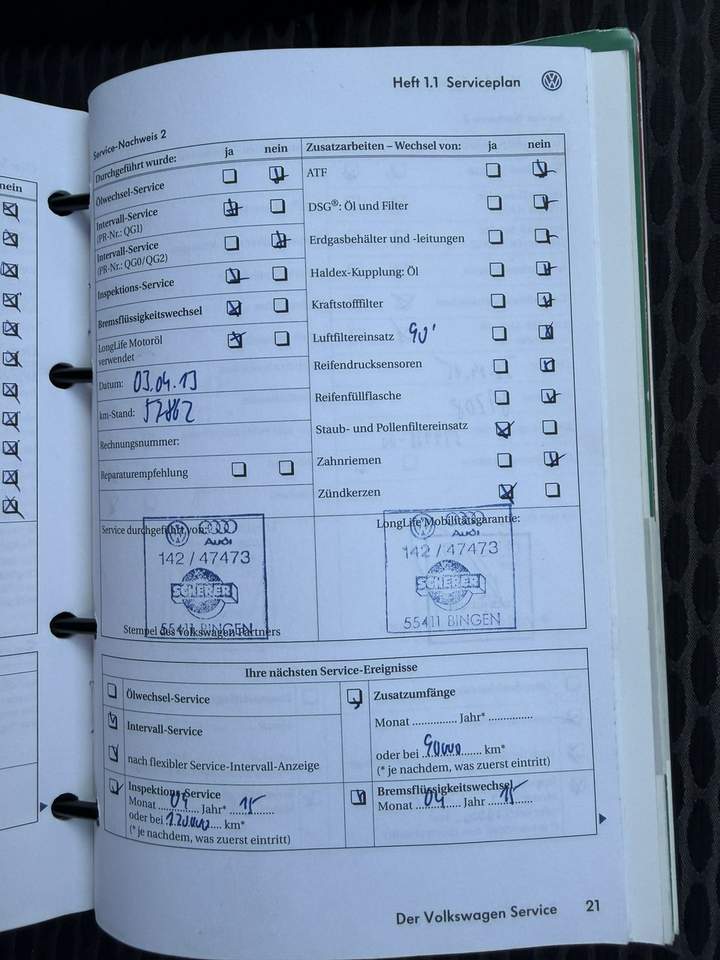 nein
Heft 1.1 Serviceplan
Service-Nachweis 2
Durchgeführt wurde: ja nein
Ölwechsel-Service
Intervall-Service
(PR-Nr.: QG1)
Intervall-Service
(PR-Nr.: QG0/QG2)
Inspektions-Service
Bremsflüssigkeitswechsel
LongLife Motoröl
verwendet
Datum: 03.04.13
km-Stand: 57862
Rechnungsnummer:
Reparaturempfehlung
Zusatzarbeiten – Wechsel von: ja nein
ATF
DSG®: Öl und Filter
Erdgasbehälter und -leitungen
Haldex-Kupplung: Öl
Kraftstofffilter
Luftfiltereinsatz 90'
Reifendrucksensoren
Reifenfüllflasche
Staub- und Pollenfiltereinsatz
Zahnriemen
Zündkerzen
Service durchgeführt von:
Audi
142 / 47473
SCHERER
55411 BINGEN
Stempel des Volkswagen Partners
LongLife Mobilitätsgarantie:
Audi
142 / 47473
SCHERER
55411 BINGEN
Ihre nächsten Service-Ereignisse
Ölwechsel-Service
Intervall-Service
nach flexibler Service-Intervall-Anzeige
Inspektions-Service
Monat 04 Jahr* 15
oder bei 120000 km*
(* je nachdem, was zuerst eintritt)
Zusatzumfänge
Monat .............. Jahr* ..............
oder bei 90000 km*
(* je nachdem, was zuerst eintritt)
Bremsflüssigkeitswechsel
Monat 04 Jahr 15
Der Volkswagen Service 21